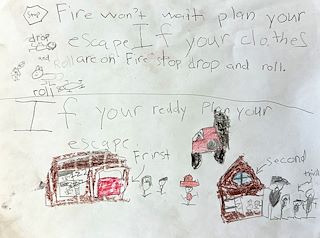 Stop Fire won't wait plan your
drop escape If your clothes
and are on Fire stop drop and roll.
roll
If your reddy Plan your
escape
Frirst
second